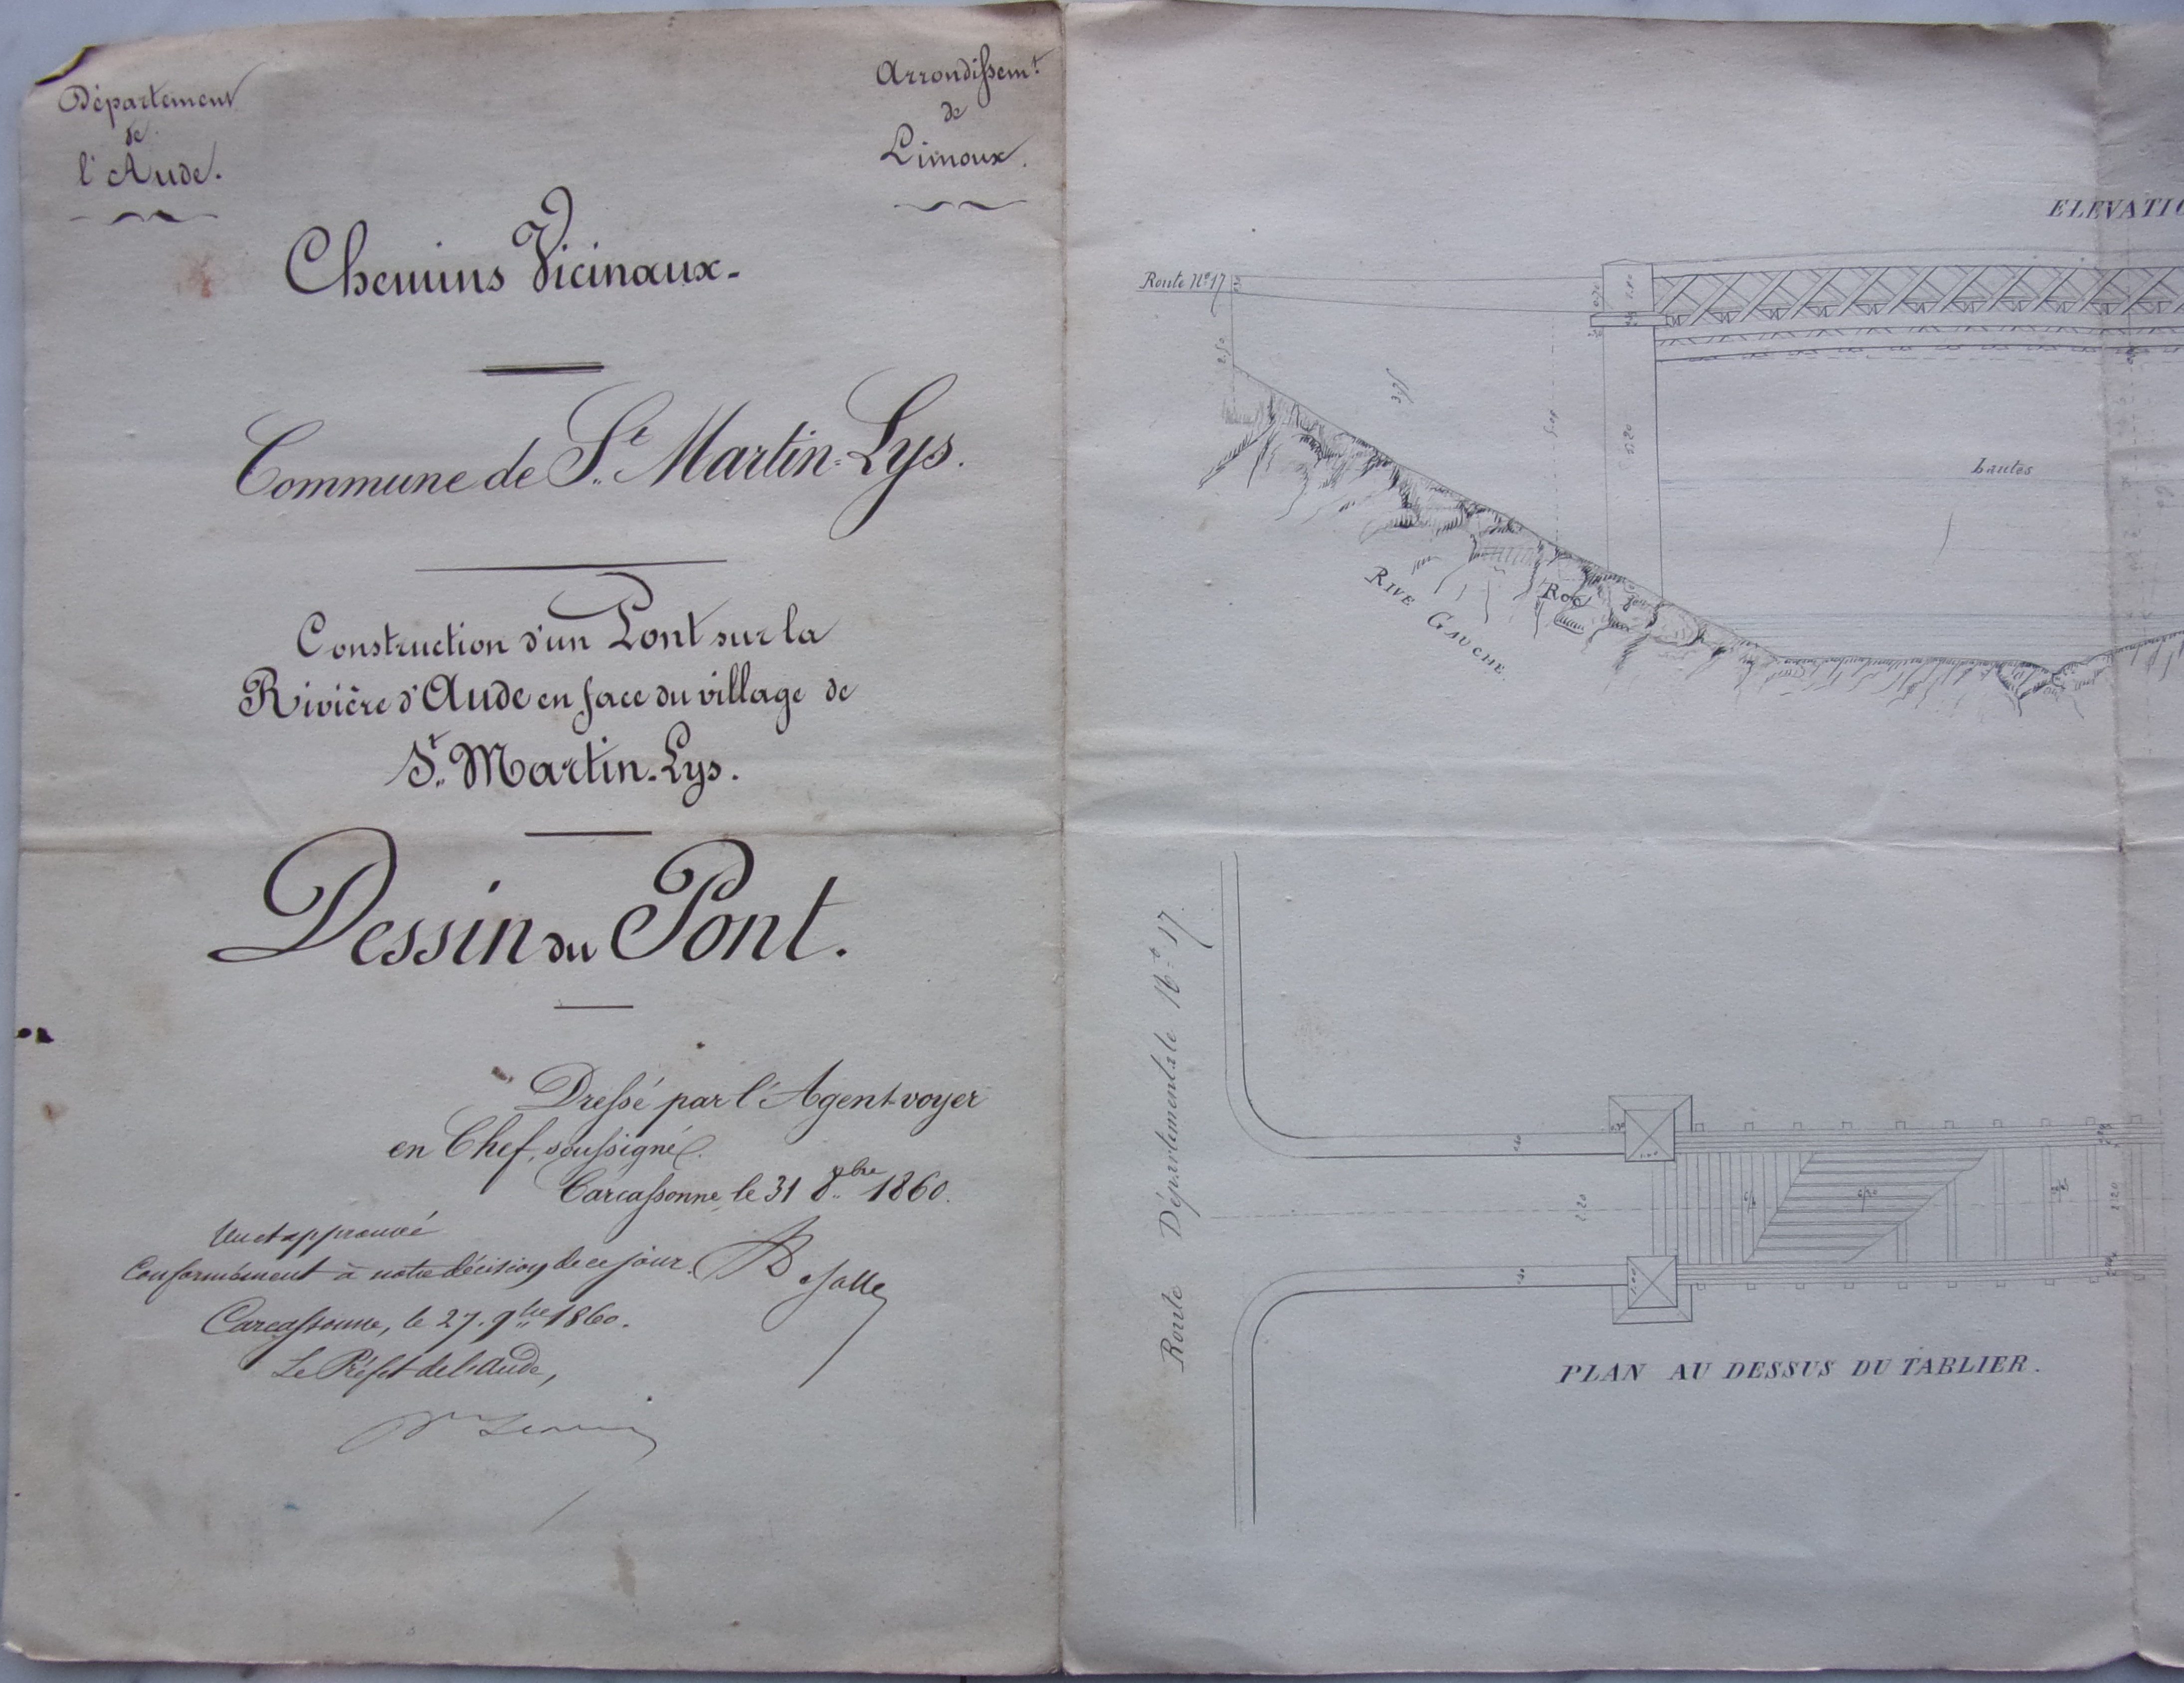 Département
de
l'Aude.
Arrondissem.t
de
Limoux.
Chemins Vicinaux.
Commune de S.t Martin-Lys.
Construction d'un Pont sur la
Rivière d'Aude en face du village de
S.t Martin-Lys.
Dessin du Pont.
Dressé par l'Agent-voyer
en Chef, soussigné.
Carcassonne, le 31 8.bre 1860.
Vu et approuvé
Conformément à notre décision de ce jour.
Carcassonne, le 27. 9.bre 1860.
Le Préfet de l'Aude,
ELEVATIO
Route N.º 17
2.50
3,75
5.20
hautes
Roc
RIVE GAUCHE.
Route Départementale N.º 17.
2.20
2.20
PLAN AU DESSUS DU TABLIER.